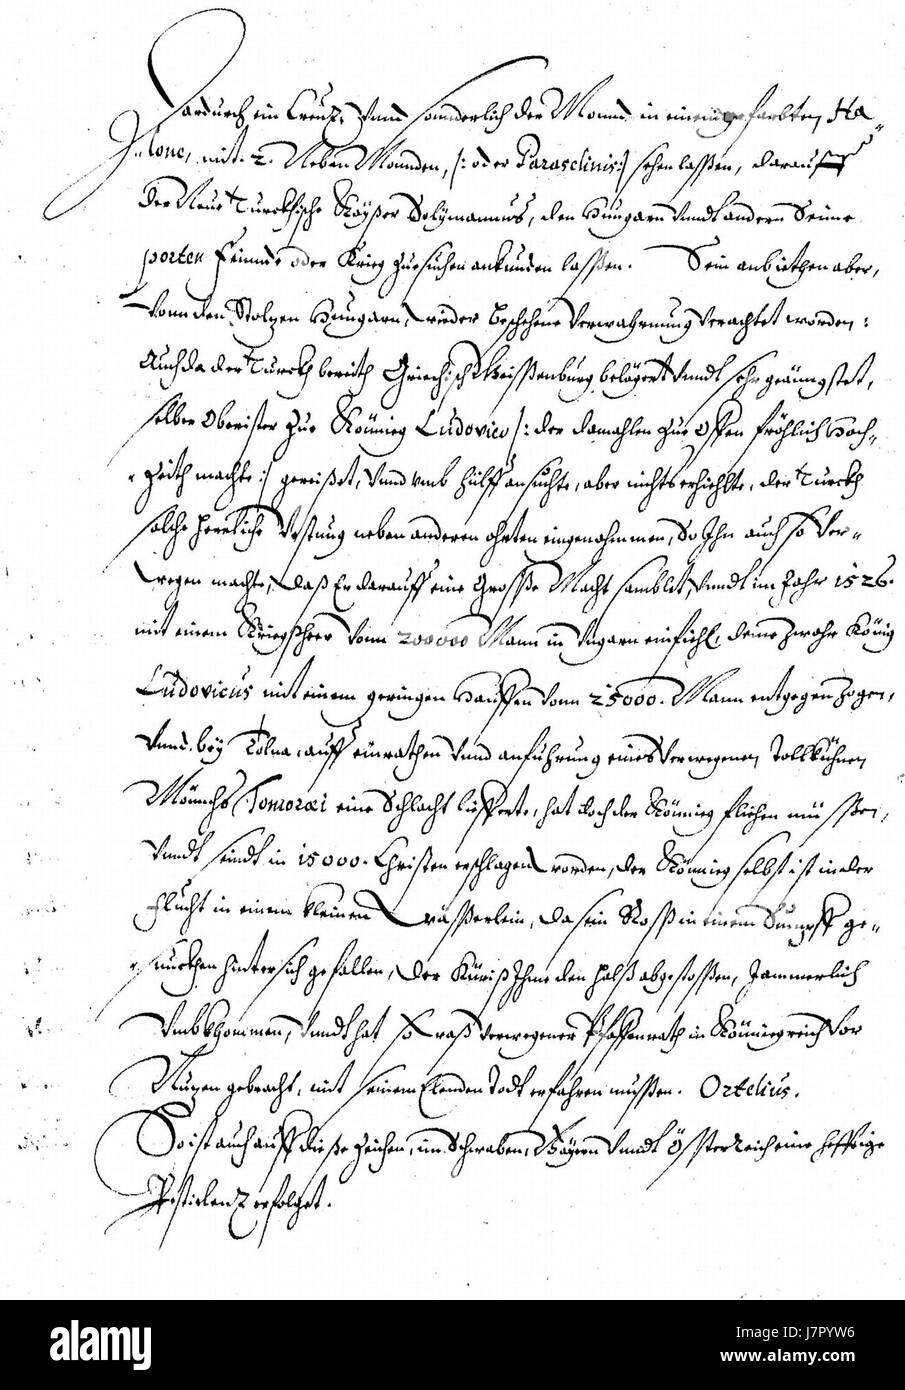 dardurch ein Creutz, Vnnd sonnderlich der Monnd in einem gefarbten Ha-
lone, mit 2. Neben Monnden, /: oder Paraselinis :/ sehen lassen, darauff
der Neue Turckhische Kayßer Solymannus, den Hungarn Vnndt andern Seine
porten Feinnd oder Krieg zuesuchen ankünden lassen. Sein anbiethen aber,
Vonn den Stolzen Hungarn, wieder beschehene Verwahrnung Verachtet worden:
Auch da der Turckh bereith Griechisch Weissenburg belägert Vnndt sehr geängstet,
selber Obrister zue König Ludovico /: der damahlen zue Offen fröhlich Hoch-
Zeith machte :/ gereißet, Vnnd vmb hülff ansuchte, aber nichts erhielte, der Turckh
solche herrliche Vestung neben anderen ohrten eingenohmmen, So Ihn auch so Ver-
wegen machte, daß Er darauff eine Grosse Macht samblet, Vnndt im Jahr 1526.
mit einem Kriegsheer Vonn 200000 Mann in Vngarn einfiehl, deme zwahr König
Ludovicus mit einem geringen Hauffen Vonn 25000. Mann entgegen zogen,
Vnnd bey Tolna, auff einrathen Vnnd anführung eines Verwegenen, Tollkühnen
Mönnchs Tomoraei eine Schlacht lieferte, hat doch der König fliehen müssen,
Vnndt seindt in 15000. Christen erschlagen worden, der König selbst ist in der
Flucht in einem kleinen Wässerlein, da sein Ross in einem Sumpff ge-
sunckhen hinter sich gefallen, der Küriß Ihme den halß abgestossen, Jammerlich
Vmbkhommen, Vnndt hat so was Verwegener Pfaffenrath in Königreich Vor
Nuzen gebracht, mit seinem Elenden Todt erfahren mussen. Ortelius.
So ist auch auff diesse Zeichen, im Schwaben, Bayern Vnndt Österreich eine hefftige
Pestilenz erfolget.
alamy stock photo
alamy
Image ID: J7PYW6
www.alamy.com